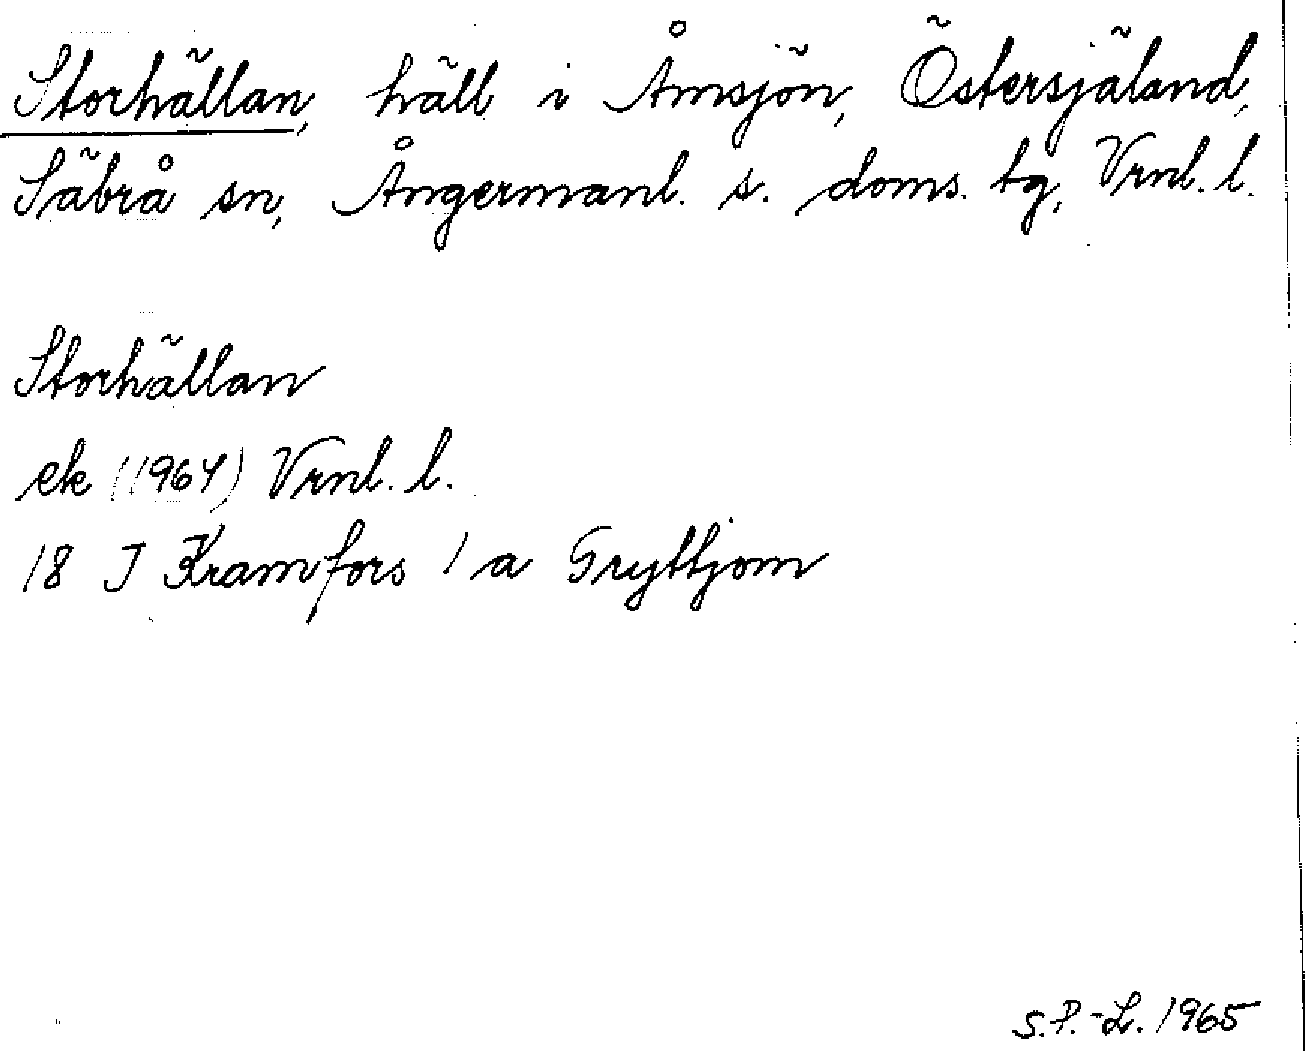 Storhällan, häll i Åmsjön, Östersjäland,
Säbrå sn, Ångermanl. s. doms. tg, Vrnl. l.
Storhällan
ek (1964) Vrnl. l.
18 J Kramfors 1 a Gryttjom
S.P.-L. 1965